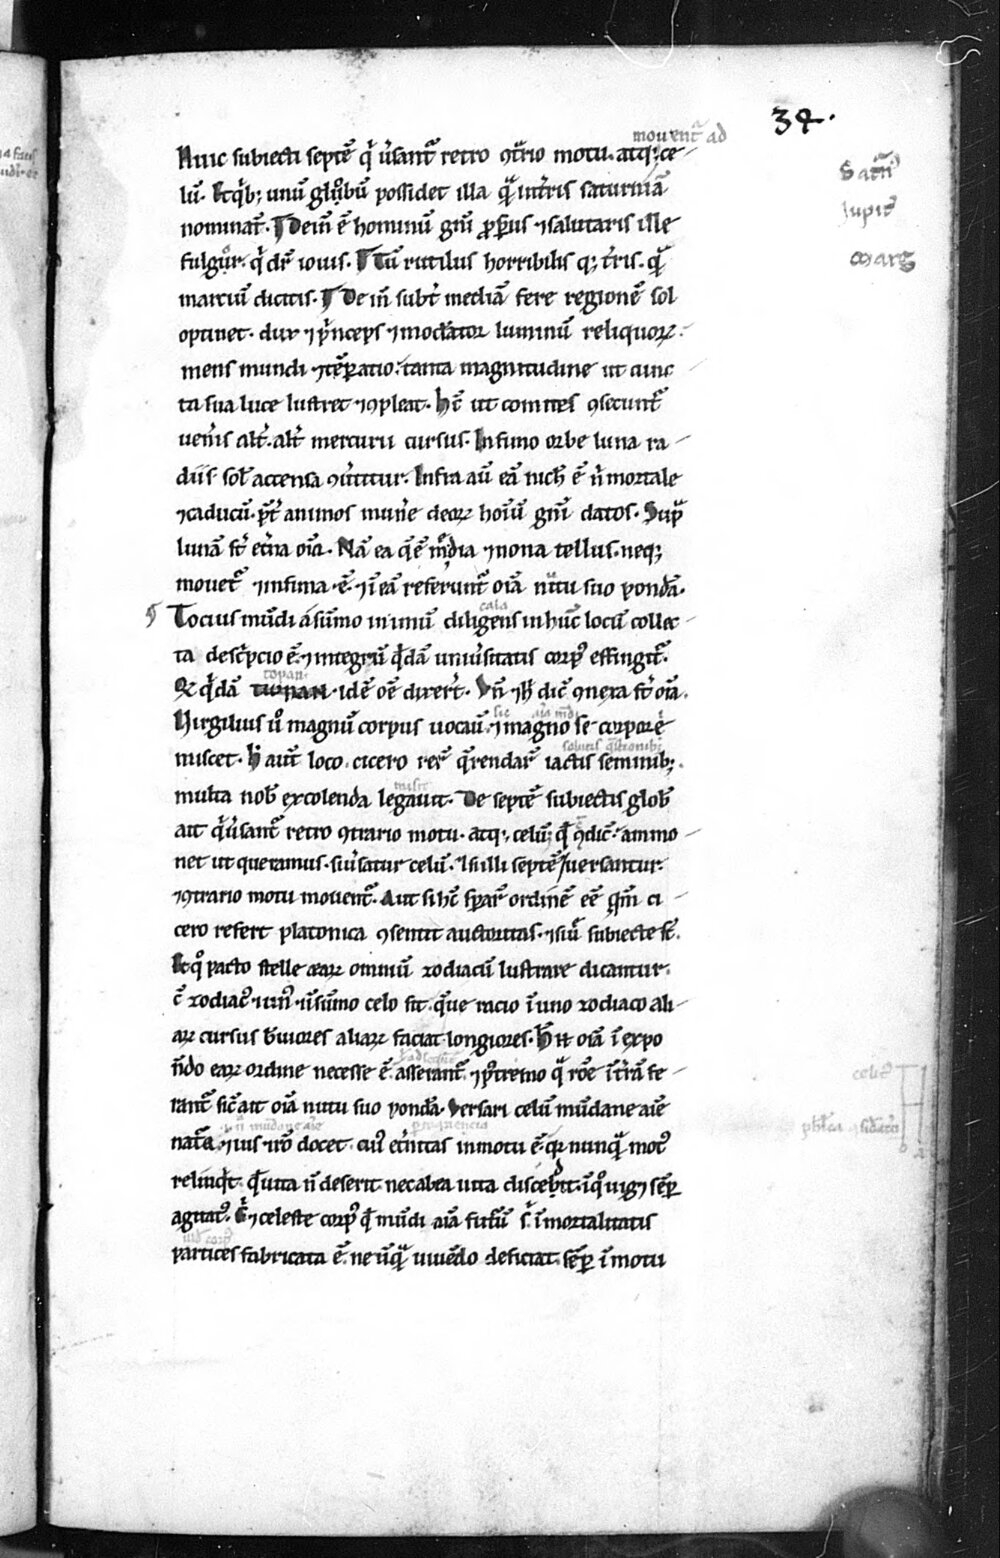 34.
mouent᷑ ad
Huic subiecti septē q̇ u̓sant᷑ retro ꝯt᷑rio motu. atq; ce
lū. Ex q̇b; unū globū possidet illa quā int̓ris saturniā
nominat᷑. Dein̄ ē hominū gn̄i ꝓsperus ⁊ salutaris ille
fulgor. q̇ dr̄ iouis. Tū rutilus horribilis q; t̓ris. quē
marciū dicitis. Dein̄ subt̓ mediā fere regionē sol
optinet. dux ⁊ p̓nceps ⁊ mod̓ator luminū reliquoꝝ.
mens mundi ⁊ tēꝑatio. tanta magnitudine ut cunc
ta sua luce lustret ⁊ ꝯpleat. Hc̄ ut comites ꝯsecunt᷑
uen̓is alt̓. alt̓ mercurii cursus. Infimo orbe luna ra
diis sol̓ accensa ꝯu̓titur. Infra aū eā nich̓ ē n̓ mortale
⁊ caducū. p̄t̓ animos mun̓e deoꝝ hoīū gn̄i datos. Sup̄
lunā st̓ et̓na oīa. Nā ea q̄ ē media ⁊ nona tellus. neq;
mouet᷑ ⁊ infima .ē. ⁊ ī eā referunt᷑ oīa nutu suo pond̓a.
Tocius mūdi a sūmo in imū diligens in hūc locū collec
ta desc̓pcio ē. ⁊ integrū q̇dā uniu̓sitatis corp᷒ effingit᷑.
topan
Qd̓ q̇dā topan. idē oē dixer̓t. Vn̄ ⁊ h̓ dic̄ ꝯnexa st̓ oīa.
Virgilius u̓o magnū corpus uocau̓. ⁊ magno se corpore
miscet. Hoc aūt loco. cicero rer̄ q̄rendar̄ iactis seminib;
multa nob̓ excolenda legauit. De septē subiectis glob̓
ait q̇ u̓sant᷑ retro ꝯtrario motu. atq; celū. qd̓ ꝯ dic̄. ammo
net ut queramus. si u̓satur celū. ⁊ si illi septē uersantur.
⁊ ꝯtrario motu mouent᷑. Aut si hc̄ sꝑar̄ ordinē eē qm̄ ci
cero refert platonica ꝯsentit auctoritas. ⁊ si u̓e subiecte st̄.
Et q̊ pacto stelle eaꝝ omniū zodiacū lustrare dicantur.
c̄ zodiac᷒ ⁊ un᷒. ⁊ ī sūmo celo sit. q̄ue racio ī uno zodiaco ali
aꝝ cursus breuiores aliaꝝ faciat longiores. Hec .n. oīa ī expo
nēdo eaꝝ ordine necesse ē asserant᷑. ⁊ postremo qua r̄oe ī t̓rā fe
rant᷑ sic̄ ait oīa nutu suo pond̓a. Versari celū mūdane aīe
nat̓a. ⁊ uis ⁊ r̄o docet. cui᷒ et̓nitas in motu ē. qr nunquā mot᷒
relinq̇t. q̄ uita n̄ deserit. nec ab ea uita discedit. ī q̊ uiget sēꝑ
agitat᷒. Ḡ ⁊ celeste corp᷒ qd̓ mūdi aīa futurū s᷑ ī mortalitatis
partices fabricata ē. ne ūquā uiuēdo deficiat. sēꝑ ī motu
Saturn᷒
Iupit᷑
Mars